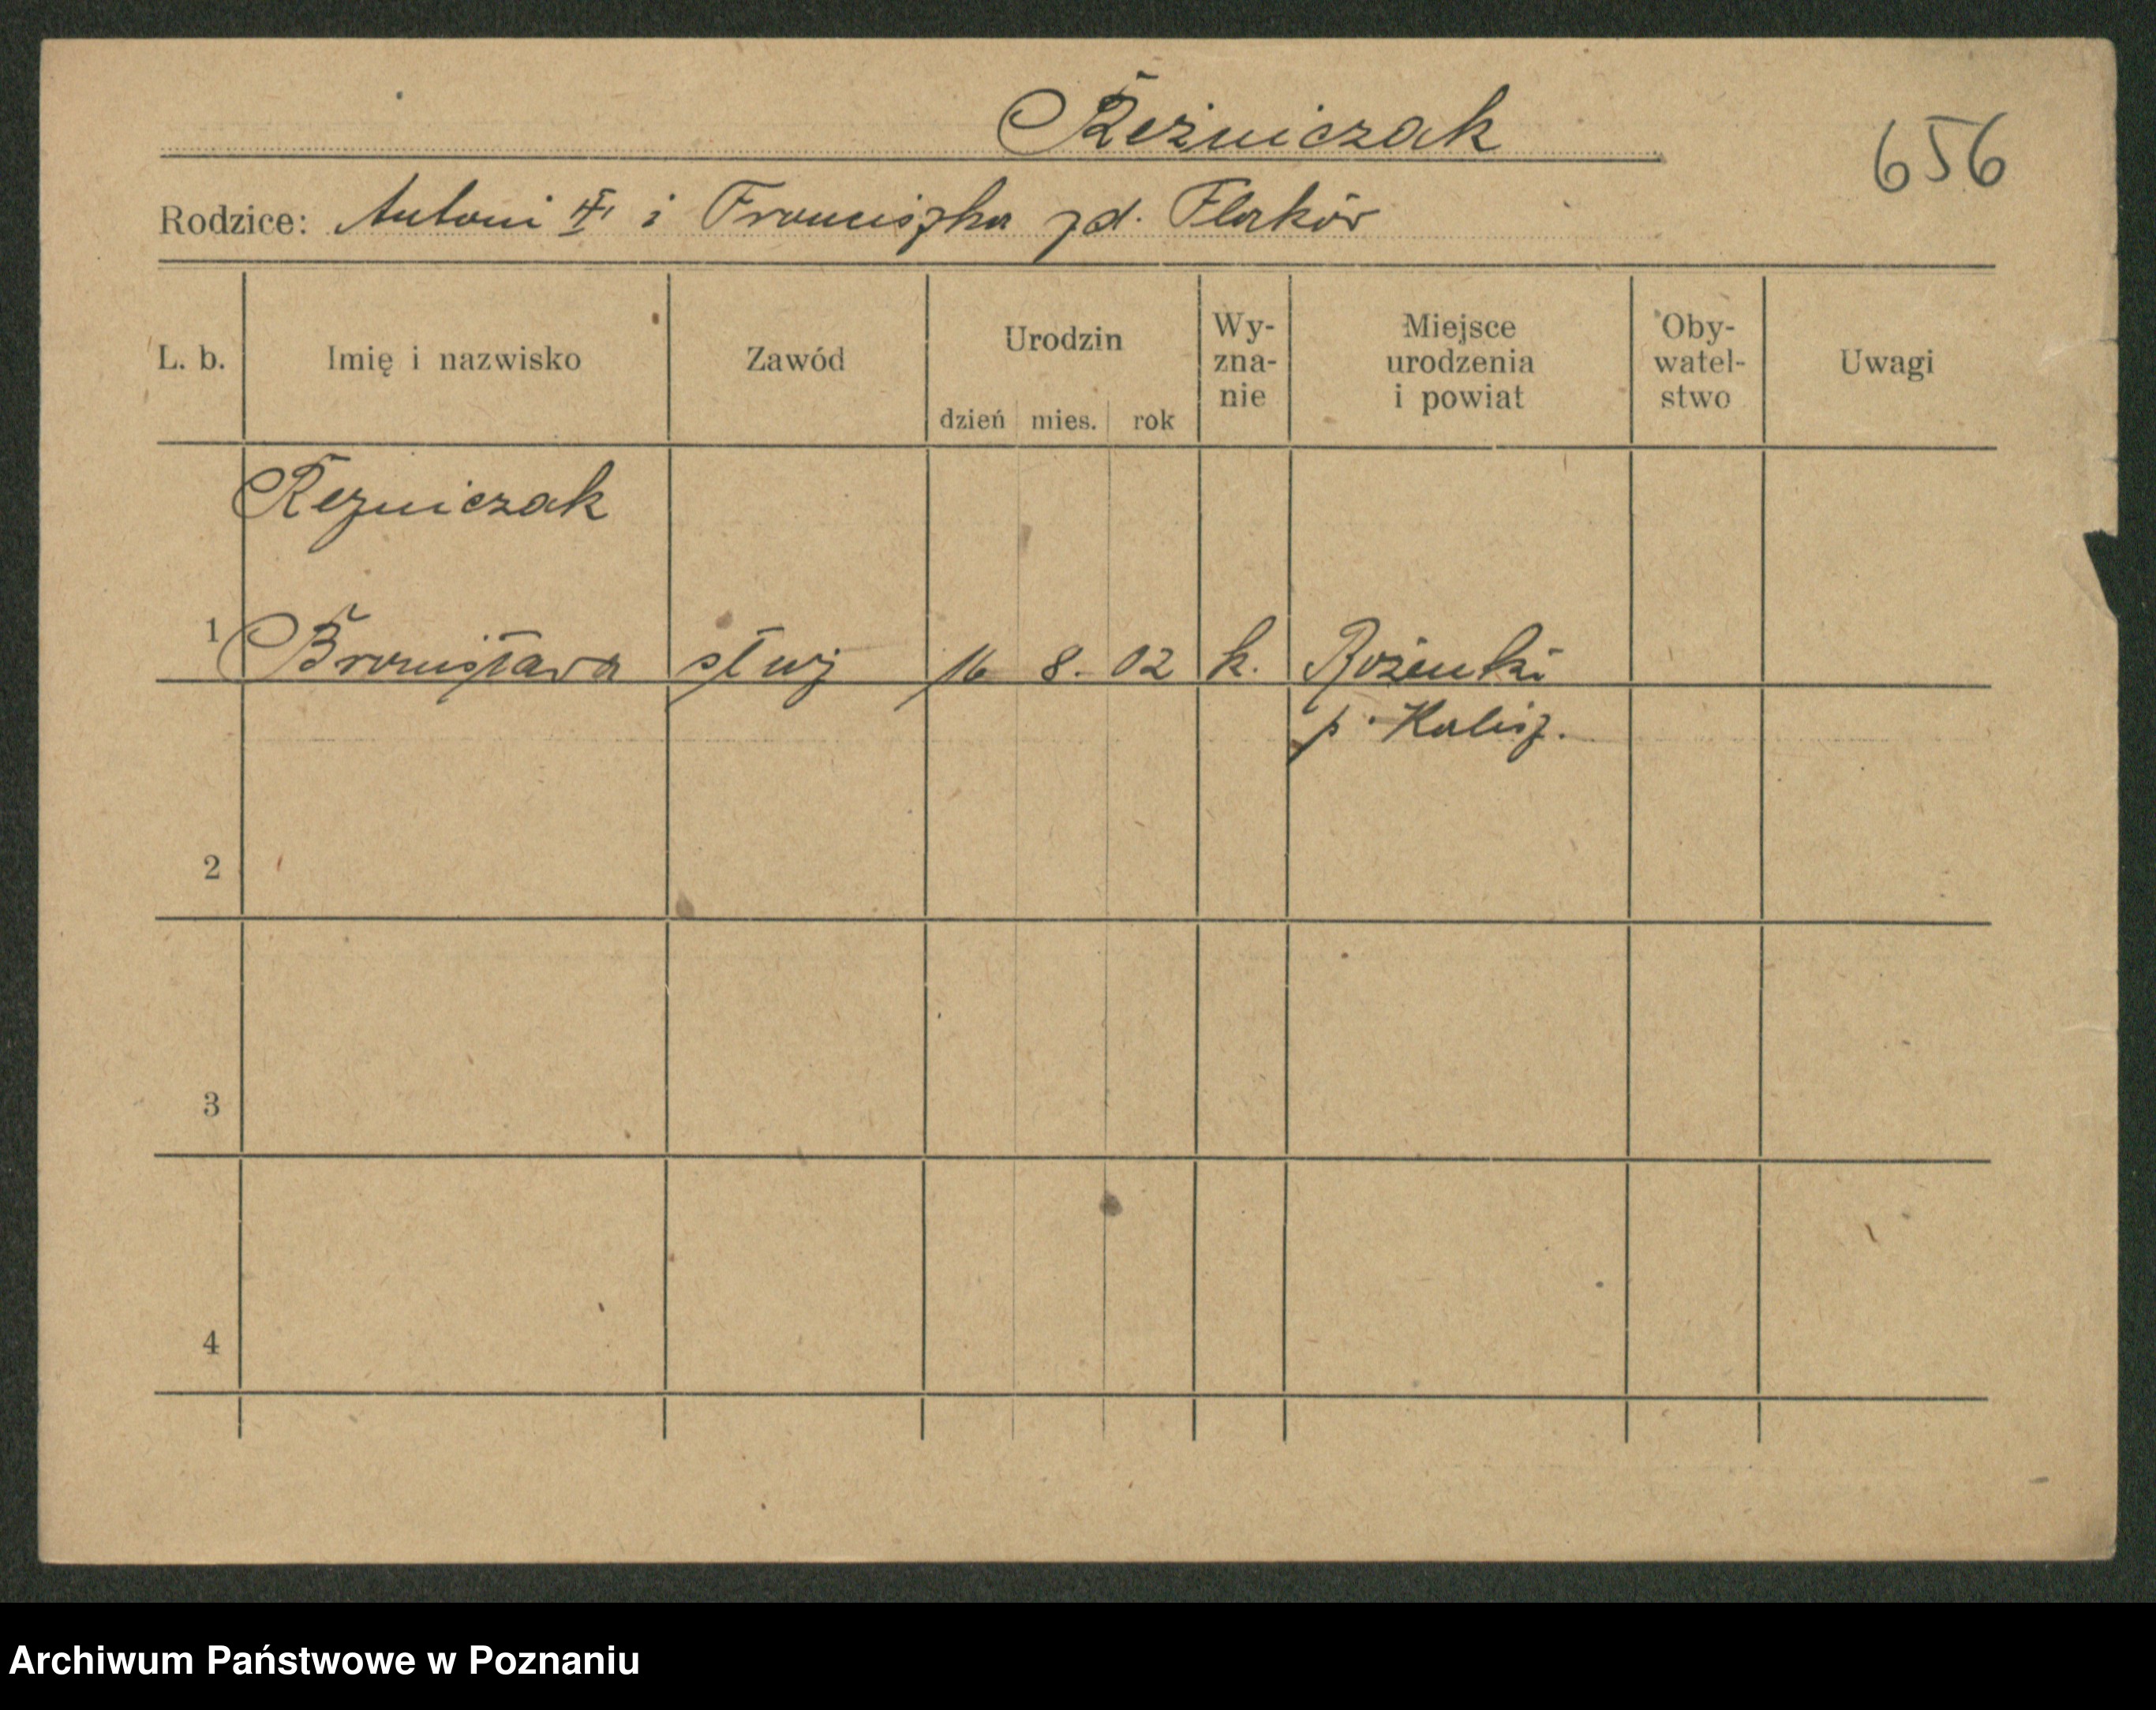 Reżniczak
656
Rodzice: Antoni i Franciszka zd. Flaków
L. b. Imię i nazwisko Zawód Urodzin dzień mies. rok Wyznanie Miejsce urodzenia i powiat Obywatelstwo Uwagi
Rezniczak
1 Bronisława 16 8. 02 k.
p. Kalisz.
2
3
4
Archiwum Państwowe w Poznaniu